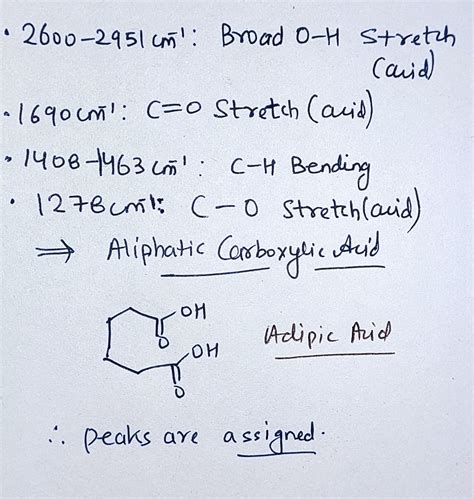 • 2600-2951 cm⁻¹: Broad O-H Stretch
(acid)
• 1690 cm⁻¹: C=O Stretch (acid)
• 1408-1463 cm⁻¹: C-H Bending
• 1278 cm⁻¹: C-O Stretch (acid)
⇒ Aliphatic Carboxylic Acid
OH
O
OH
O
Adipic Acid
∴ peaks are assigned.